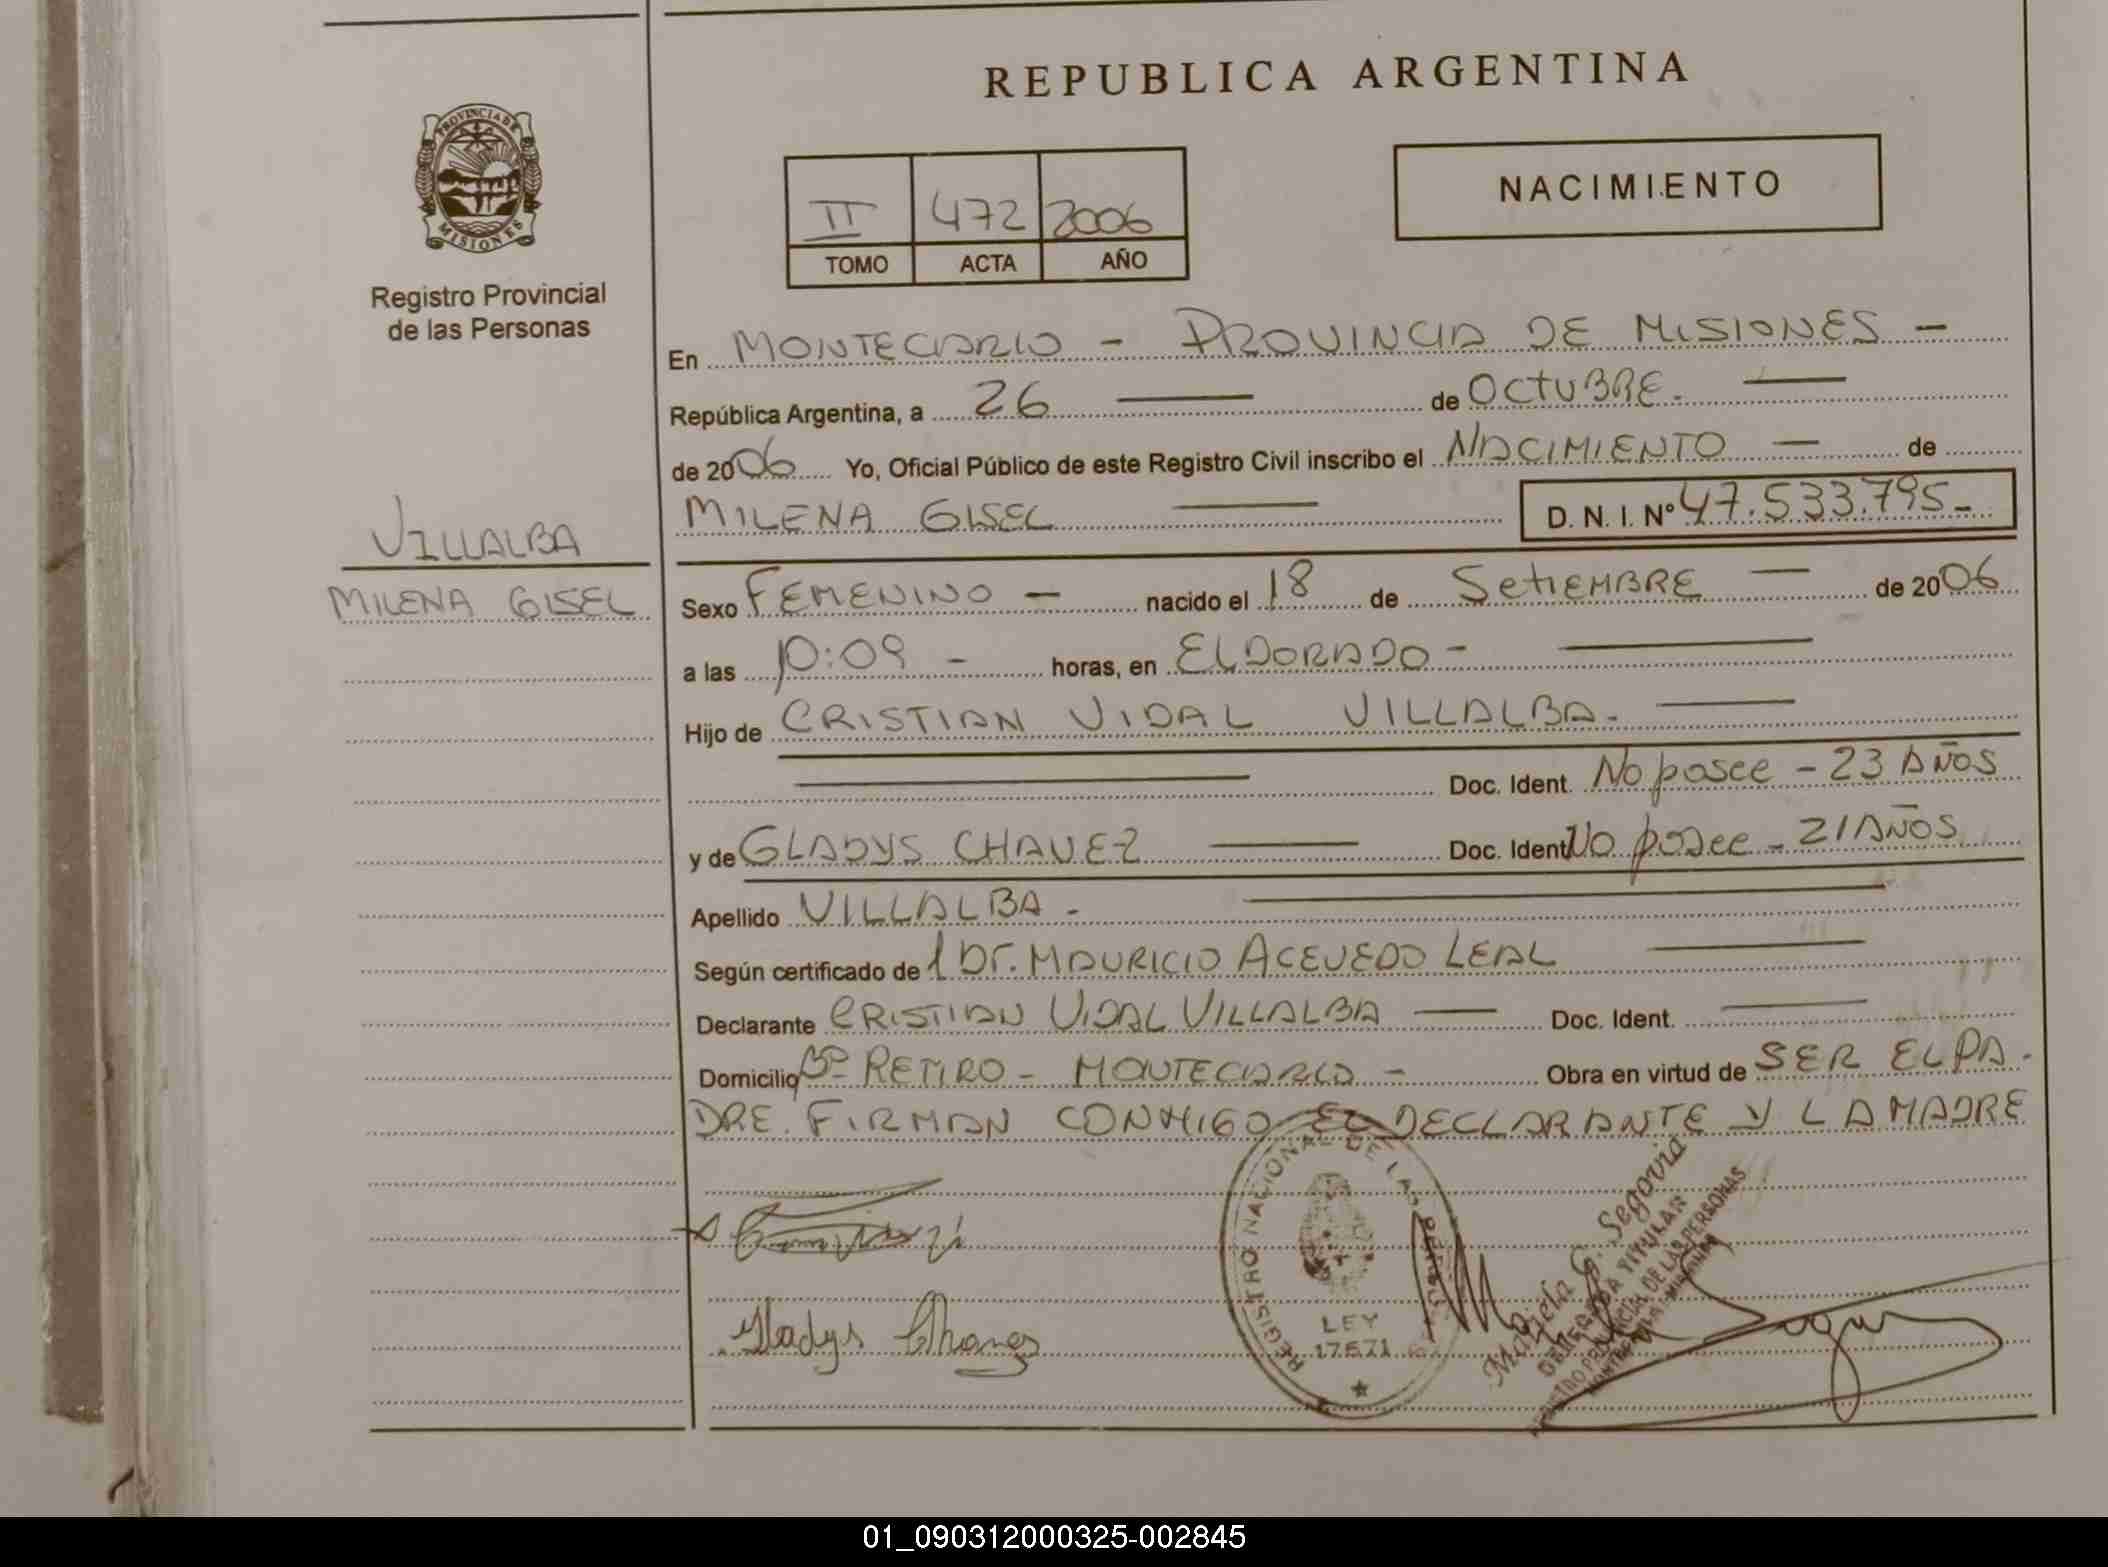 REPUBLICA ARGENTINA
PROVINCIA DE
MISIONES
Registro Provincial
de las Personas
NACIMIENTO
II 472 2006
TOMO ACTA AÑO
En MONTECARLO - PROVINCIA DE MISIONES -
República Argentina, a 26 de OCTUBRE.
de 2006 Yo, Oficial Público de este Registro Civil inscribo el NACIMIENTO de
MILENA GISEL D. N. I. Nº 47.533.795-
VILLALBA
MILENA GISEL
Sexo FEMENINO - nacido el 18 de SetIEMBRE de 2006
a las 10:09 - horas, en ELDORADO -
Hijo de CRISTIAN VIDAL VILLALBA.
Doc. Ident. No posee - 23 AÑOS
y de GLADYS CHAVEZ Doc. Ident. No posee - 21 AÑOS
Apellido VILLALBA -
Según certificado de l Dr. MAURICIO ACEVEDO LEAL
Declarante CRISTIAN VIDAL VILLALBA Doc. Ident.
Domicilio Bº RETIRO - MONTECARLO - Obra en virtud de SER EL PA-
DRE. FIRMAN CONMIGO EL DECLARANTE Y LA MADRE
REGISTRO NACIONAL DE LAS PERSONAS
LEY
17671
G. Segovia
DELEGADA TITULAR
REGISTRO PROVINCIAL DE LAS PERSONAS
Gladys Chavez
01_090312000325-002845